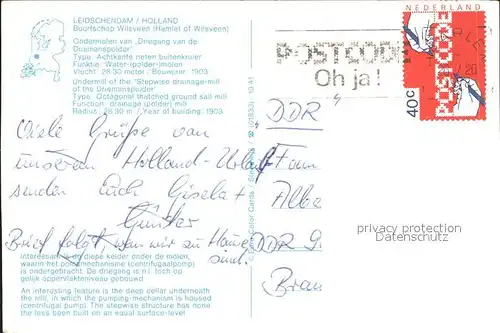 LEIDSCHENDAM / HOLLAND
Buurtschap Wilsveen (Hamlet of Wilsveen)
Ondermolen van „Driegang van de
Driemanspolder"
Type: Achtkante rieten buitenkruier
Funktie: Water-(polder)molen
Vlucht: 28.30 meter / Bouwjaar: 1903
Undermill of the "Stepwise drainage-mill
of the Driemanspolder"
Type: Octagonal thatched ground sail mill
Function: drainage (polder) mill
Radius: 28.30 m / Year of building: 1903
Viele Grüße von
unserem Holland-Urlaub
senden Euch Gisela +
Günter
Brief folgt, wenn wir zu Hause
sind.
Interessant is de diepe kelder onder de molen,
waarin het pompmechanisme (centrifugaalpomp)
is ondergebracht. De driegang is n.l. toch op
gelijk oppervlakteniveau gebouwd
An interesting feature is the deep cellar underneath
the mill, in which the pumping-mechanism is housed
(centrifugal pump). The stepwise structure has none
the less been built on an equal surface-level
NEDERLAND
40c
POSTCODE
POSTCODE
Oh ja!
DDR
Fam
Albe
DDR 9
Brau
privacy protection
Datenschutz